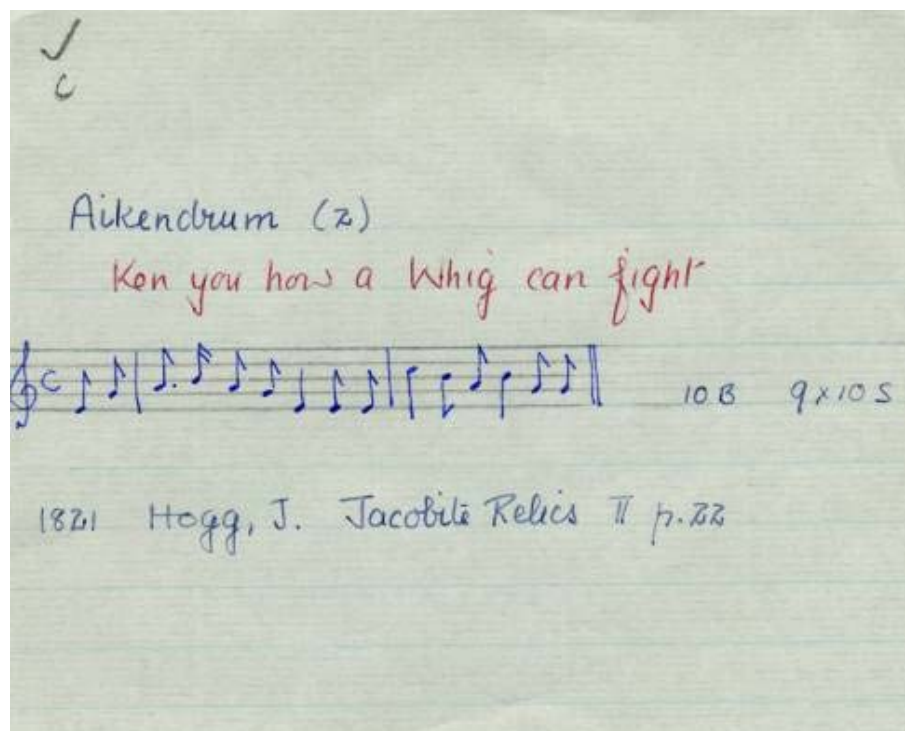 ✓
C
Aikendrum (2)
Ken you how a Whig can fight
C
10 B 9x10 S
1821 Hogg, J. Jacobite Relics II p.22